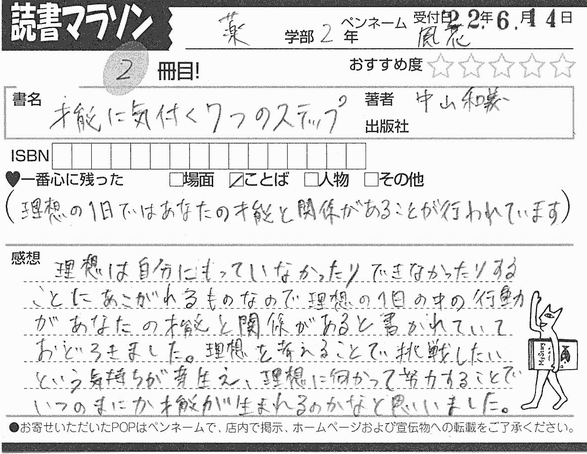 読書マラソン
薬 学部 2 年
ペンネーム 風花
受付日 22年6.月14日
2 冊目!
おすすめ度 ☆☆☆☆☆
書名 才能に気付く7つのステップ
著者 中山和義
出版社
ISBN
♥一番心に残った □場面 ☑ことば □人物 □その他
(理想の1日ではあなたの才能と関係があることが行われています)
感想
理想は自分にもっていなかったりできなかったりする
ことにあこがれるものなので理想の1日の中の行動
があなたの才能と関係があると書かれていて
おどろきました。理想を考えることで挑戦したい
という気持ちが芽生え、理想に向かって努力することで
いつのまにか才能が生まれるのかなと思いました。
●お寄せいただいたPOPはペンネームで、店内で掲示、ホームページおよび宣伝物への転載をご了承ください。